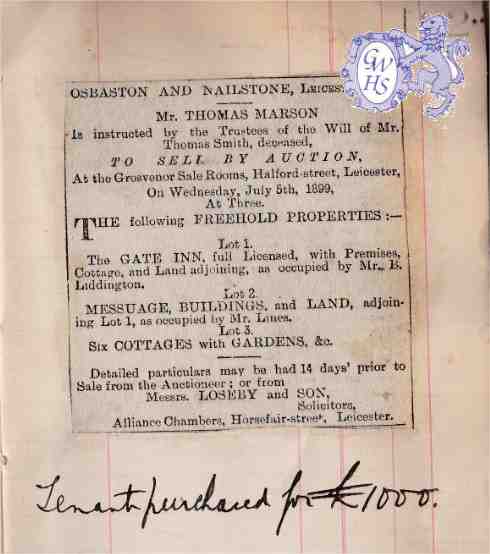 GW
HS
OSBASTON AND NAILSTONE, LEICES
Mr. THOMAS MARSON
Is instructed by the Trustees of the Will of Mr.
Thomas Smith, deceased,
TO SELL BY AUCTION,
At the Grosvenor Sale Rooms, Halford-street, Leicester,
On Wednesday, July 5th, 1899,
At Three.
THE following FREEHOLD PROPERTIES :—
Lot 1.
The GATE INN, full Licensed, with Premises,
Cottage, and Land adjoining, as occupied by Mr. E.
Liddington.
Lot 2.
MESSUAGE, BUILDINGS, and LAND, adjoin-
ing Lot 1, as occupied by Mr. Lines.
Lot 3.
Six COTTAGES with GARDENS, &c.
Detailed particulars may be had 14 days' prior to
Sale from the Auctioneer ; or from
Messrs. LOSEBY and SON,
Solicitors,
Alliance Chambers, Horsefair-street, Leicester.
Tenant purchased for £1000.